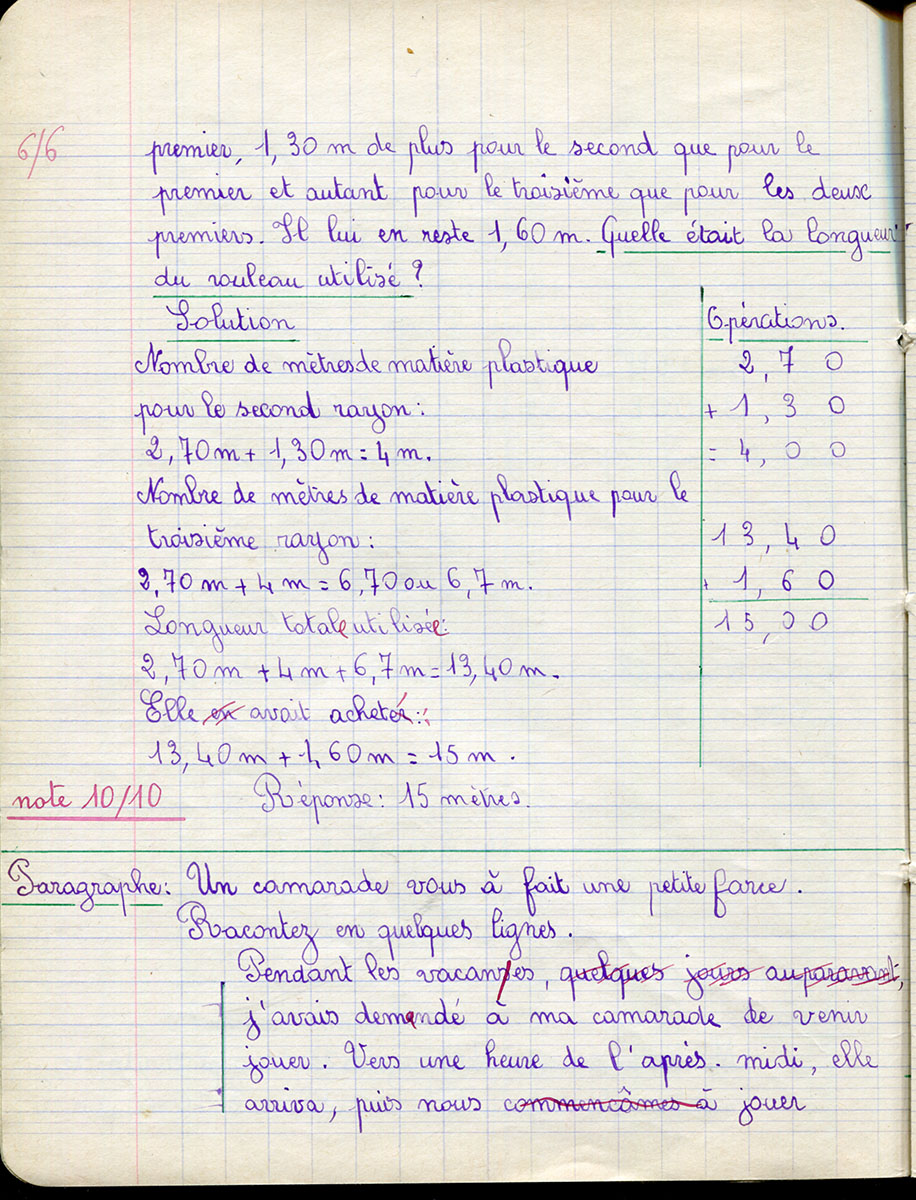 6/6
premier, 1,30 m de plus pour le second que pour le
premier et autant pour le troisième que pour les deux
premiers. Il lui en reste 1,60 m. Quelle était la longueur
du rouleau utilisé ?
Solution
Opérations.
Nombre de mètres de matière plastique
2,70
pour le second rayon :
+ 1,30
2,70 m + 1,30 m = 4 m.
= 4,00
Nombre de mètres de matière plastique pour le
troisième rayon :
13,40
2,70 m + 4 m = 6,70 ou 6,7 m.
+ 1,60
Longueur totale utilisée :
15,00
2,70 m + 4 m + 6,7 m = 13,40 m.
Elle en avait acheté :
13,40 m + 1,60 m = 15 m.
note 10/10
Réponse : 15 mètres.
Paragraphe : Un camarade vous à fait une petite farce.
Racontez en quelques lignes.
Pendant les vacances, quelques jours auparavant,
j'avais demandé à ma camarade de venir
jouer. Vers une heure de l'après-midi, elle
arriva, puis nous commencâmes à jouer